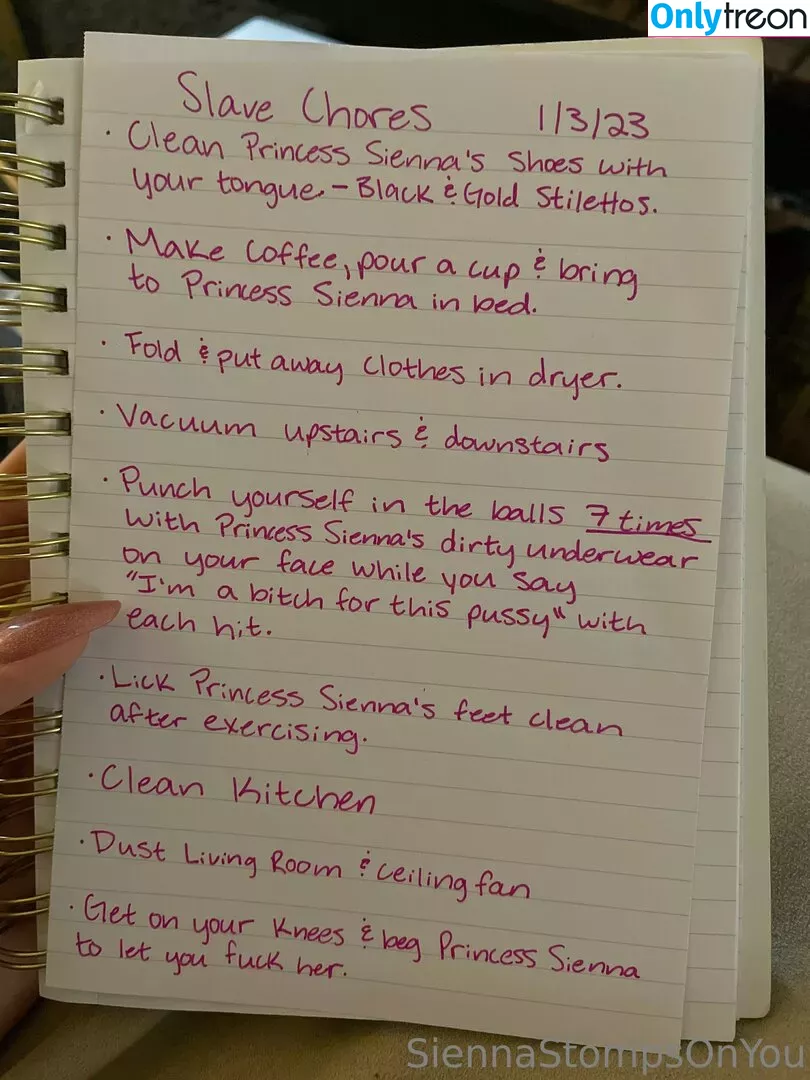 Onlytreon
Slave Chores 1/3/23
· Clean Princess Sienna's Shoes with
your tongue - Black & Gold Stilettos.
· Make Coffee, pour a cup & bring
to Princess Sienna in bed.
· Fold & put away clothes in dryer.
· Vacuum upstairs & downstairs
· Punch yourself in the balls 7 times
with Princess Sienna's dirty underwear
on your face while you say
"I'm a bitch for this pussy" with
each hit.
· Lick Princess Sienna's feet clean
after exercising.
· Clean Kitchen
· Dust Living Room & ceiling fan
· Get on your knees & beg Princess Sienna
to let you fuck her.
SiennaStompsOnYou